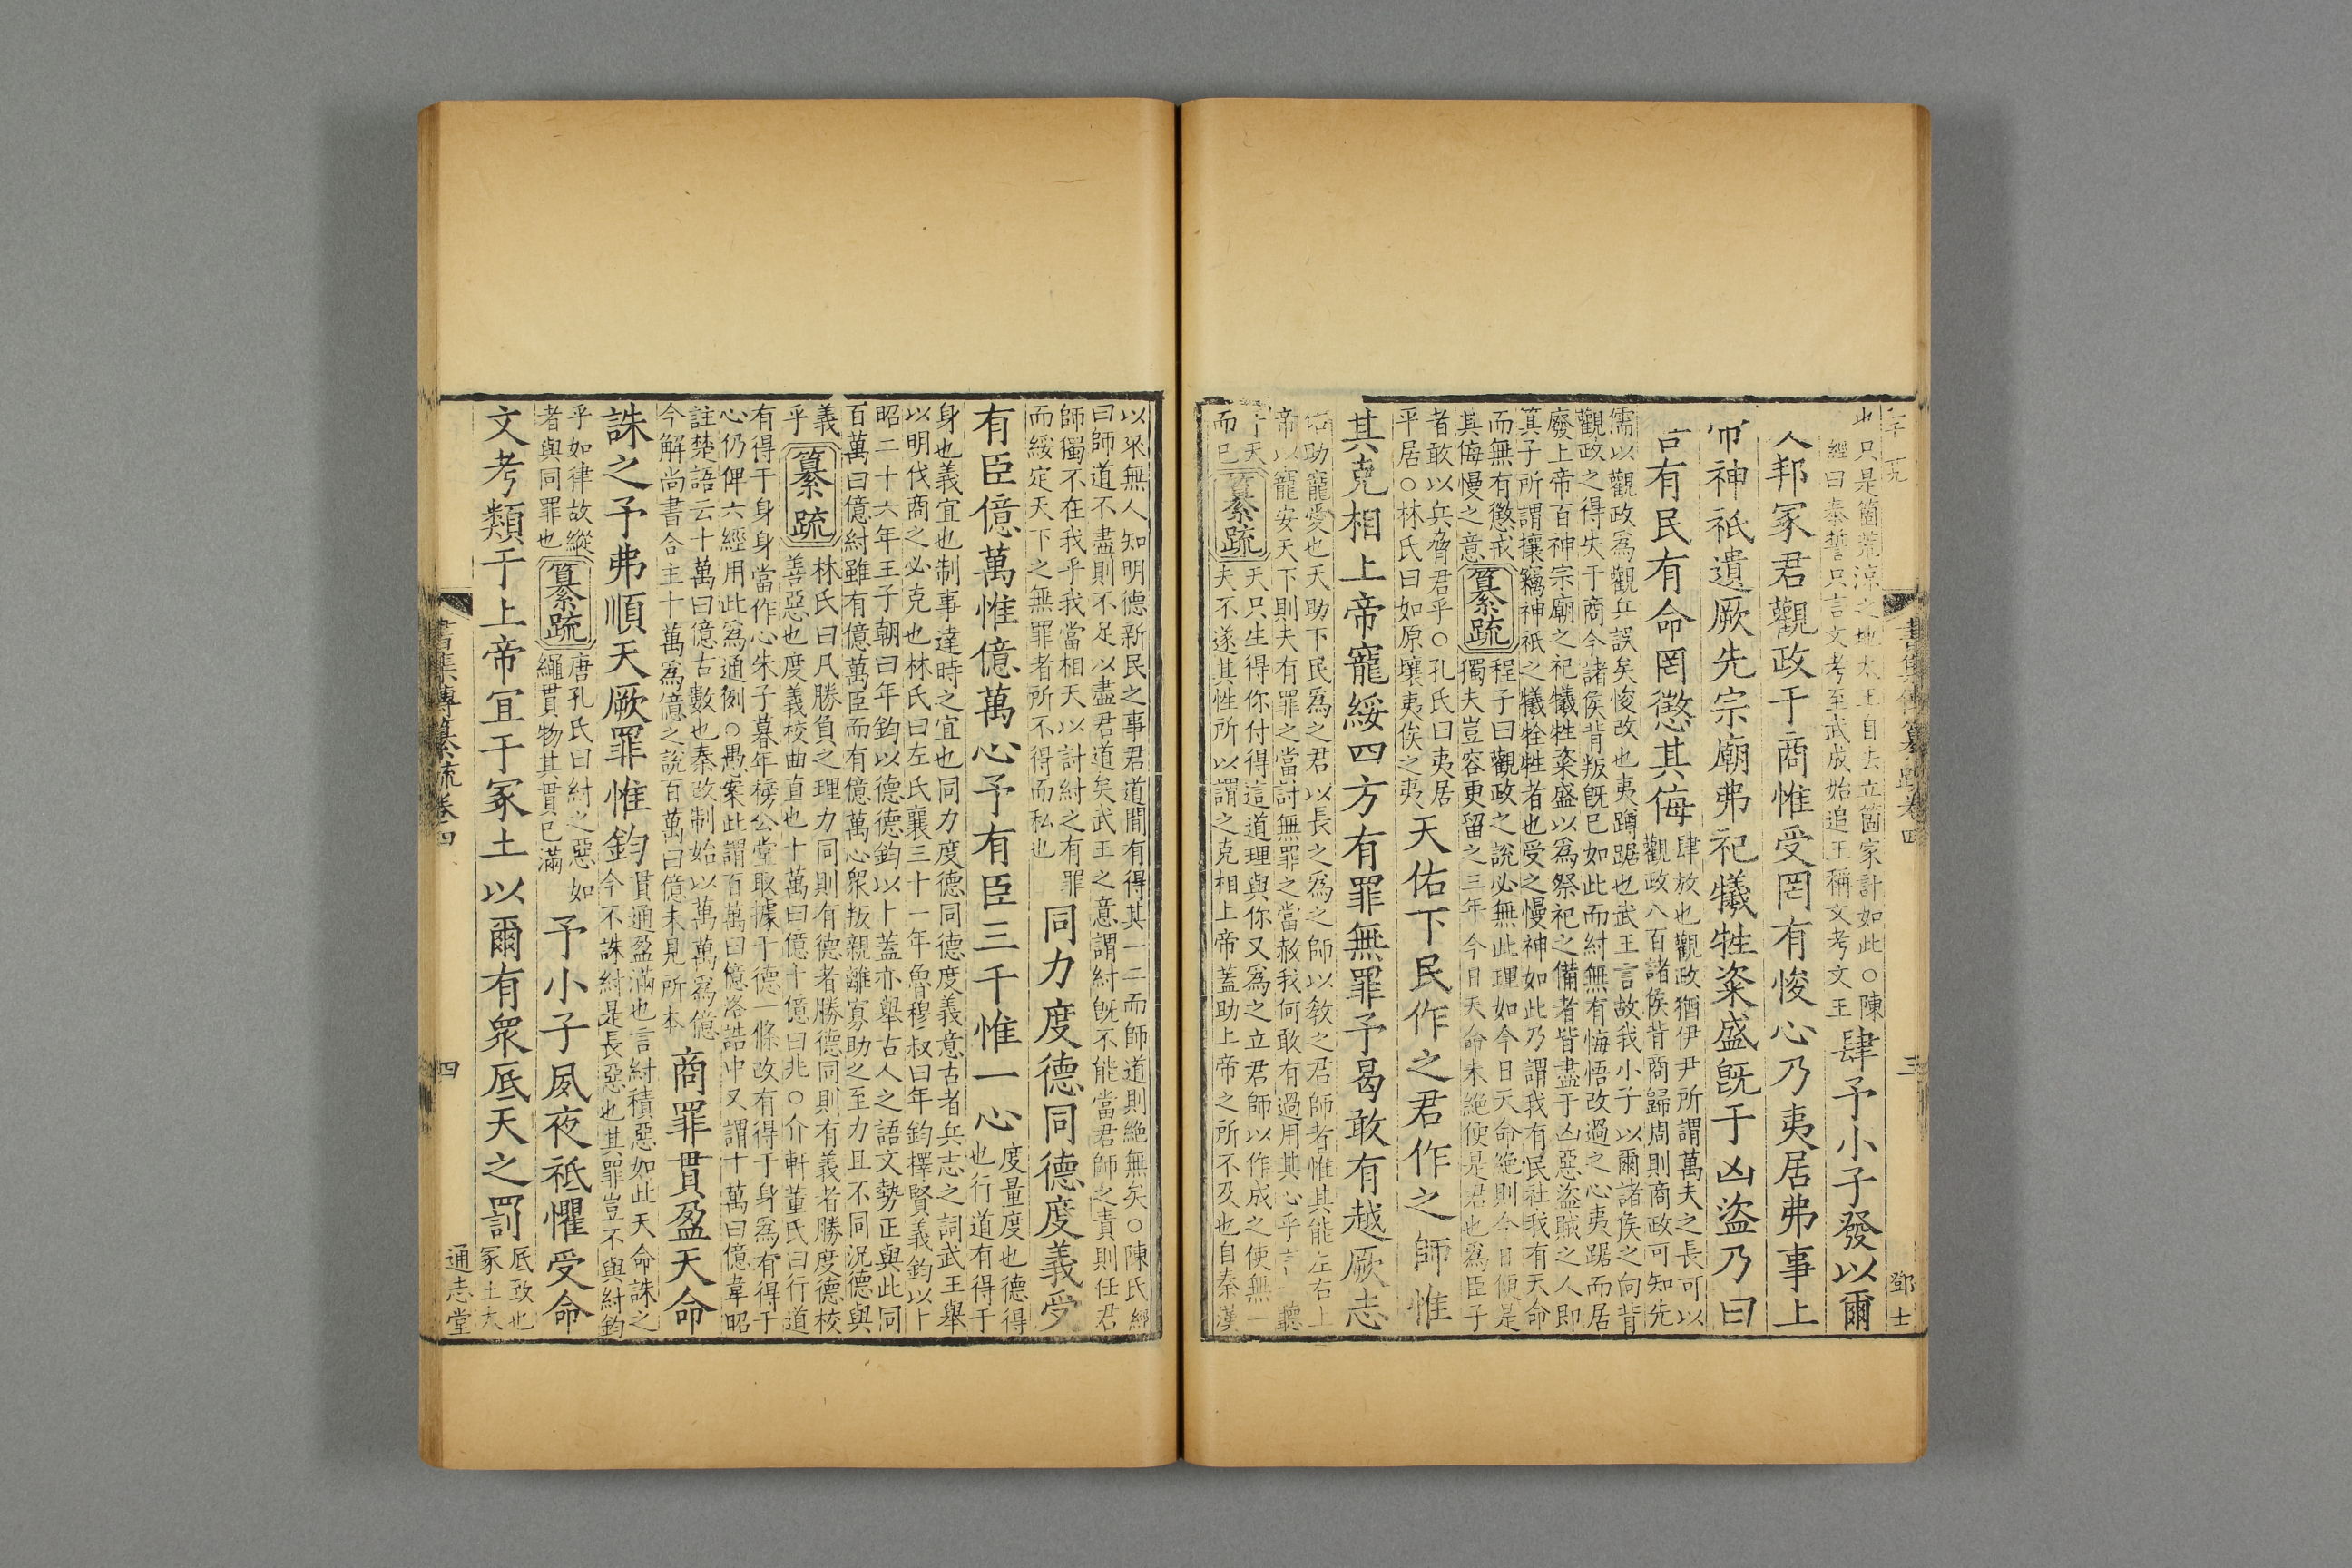 也只是箇荒涼之地太王自去立箇家計如此○陳
經曰泰誓只言文考至武成始追王稱文考文王
肆予小子發以爾
友邦冢君觀政于商惟受罔有悛心乃夷居弗事上
帝神祇遺厥先宗廟弗祀犧牲粢盛既于凶盜乃曰
吾有民有命罔懲其侮
肆放也觀政猶伊尹所謂萬夫之長可以
觀政八百諸侯背商歸周則商政可知先
儒以觀政爲觀兵誤矣悛改也夷蹲踞也武王言故我小子以爾諸侯之向背
觀政之得失于商今諸侯背叛既已如此而紂無有悔悟改過之心夷踞而居
廢上帝百神宗廟之祀犧牲粢盛以爲祭祀之備者皆盡于凶惡盜賊之人即
箕子所謂攘竊神祇之犧牷牲者也受之慢神如此乃謂我有民社我有天命
而無有懲戒
其侮慢之意
纂疏
程子曰觀政之說必無此理如今日天命絶則今日便是
獨夫豈容更留之三年今日天命未絶便是君也爲臣子
者敢以兵脅君乎○孔氏曰夷居
平居○林氏曰如原壤夷俟之夷
天佑下民作之君作之師惟
其克相上帝寵綏四方有罪無罪予曷敢有越厥志
佑助寵愛也天助下民爲之君以長之爲之師以教之君師者惟其能左右上
帝以寵安天下則夫有罪之當討無罪之當赦我何敢有過用其心乎言一聽
于天
而已
纂疏
天只生得你付得這道理與你又爲之立君師以作成之使無一
夫不遂其性所以謂之克相上帝蓋助上帝之所不及也自秦漢
書集傳纂疏卷四
三
鄧士
以來無人知明德新民之事君道間有得其一二而師道則絶無矣○陳氏經
曰師道不盡則不足以盡君道矣武王之意謂紂既不能當君師之責則任君
師獨不在我乎我當相天以討紂之有罪
而綏定天下之無罪者所不得而私也
同力度德同德度義受
有臣億萬惟億萬心予有臣三千惟一心
度量度也德得
也行道有得于
身也義宜也制事達時之宜也同力度德同德度義意古者兵志之詞武王舉
以明伐商之必克也林氏曰左氏襄三十一年魯穆叔曰年鈞擇賢義鈞以卜
昭二十六年王子朝曰年鈞以德德鈞以卜蓋亦舉古人之語文勢正與此同
百萬曰億紂雖有億萬臣而有億萬心衆叛親離寡助之至力且不同況德與
義
乎
纂疏
林氏曰凡勝負之理力同則有德者勝德同則有義者勝度德校
善惡也度義校曲直也十萬曰億十億曰兆○介軒董氏曰行道
有得于身身當作心朱子暮年榜公堂取據于德一條改有得于身爲有得于
心仍俾六經用此爲通例○愚案此謂百萬曰億洛誥中又謂十萬曰億韋昭
註楚語云十萬曰億古數也秦改制始以萬萬爲億
今解尚書合主十萬爲億之說百萬曰億未見所本
商罪貫盈天命
誅之予弗順天厥罪惟鈞
貫通盈滿也言紂積惡如此天命誅之
今不誅紂是長惡也其罪豈不與紂鈞
乎如律故縱
者與同罪也
纂疏
唐孔氏曰紂之惡如
繩貫物其貫已滿
予小子夙夜祗懼受命
文考類于上帝宜于冢土以爾有衆厎天之罰
厎致也
冢土大
書集傳纂疏卷四
四
通志堂